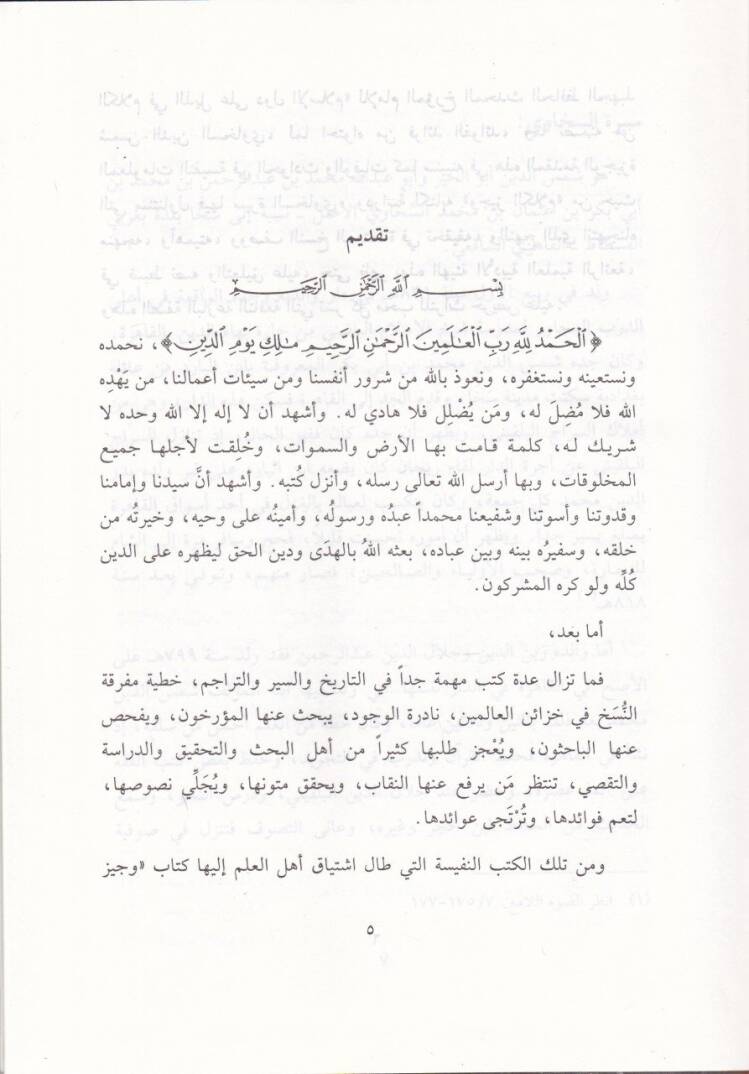 تقديم
بِسْمِ اللَّهِ الرَّحْمَٰنِ الرَّحِيمِ
﴿الْحَمْدُ لِلَّهِ رَبِّ الْعَالَمِينَ الرَّحْمَٰنِ الرَّحِيمِ مَالِكِ يَوْمِ الدِّينِ﴾، نحمده
ونستعينه ونستغفره، ونعوذ بالله من شرور أنفسنا ومن سيئات أعمالنا، من يَهْدِه
الله فلا مُضلَّ له، ومَن يُضْلِل فلا هادي له. وأشهد أن لا إله إلا الله وحده لا
شريك له، كلمة قامت بها الأرض والسموات، وخُلِقت لأجلها جميع
المخلوقات، وبها أرسل الله تعالى رسله، وأنزل كُتبه. وأشهد أنَّ سيدنا وإمامنا
وقدوتنا وأسوتنا وشفيعنا محمداً عبدُه ورسولُه، وأمينُه على وحيه، وخيرتُه من
خلقه، وسفيرُه بينه وبين عباده، بعثه اللهُ بالهدَى ودين الحق ليظهره على الدين
كُلِّه ولو كره المشركون.
أما بعد،
فما تزال عدة كتب مهمة جداً في التاريخ والسير والتراجم، خطية مفرقة
النُّسَخ في خزائن العالمين، نادرة الوجود، يبحث عنها المؤرخون، ويفحص
عنها الباحثون، ويُعْجز طلبها كثيراً من أهل البحث والتحقيق والدراسة
والتقصي، تنتظر مَن يرفع عنها النقاب، ويحقق متونها، ويُجَلِّي نصوصها،
لتعم فوائدها، وتُرْتَجى عوائدها.
ومن تلك الكتب النفيسة التي طال اشتياق أهل العلم إليها كتاب «وجيز
٥